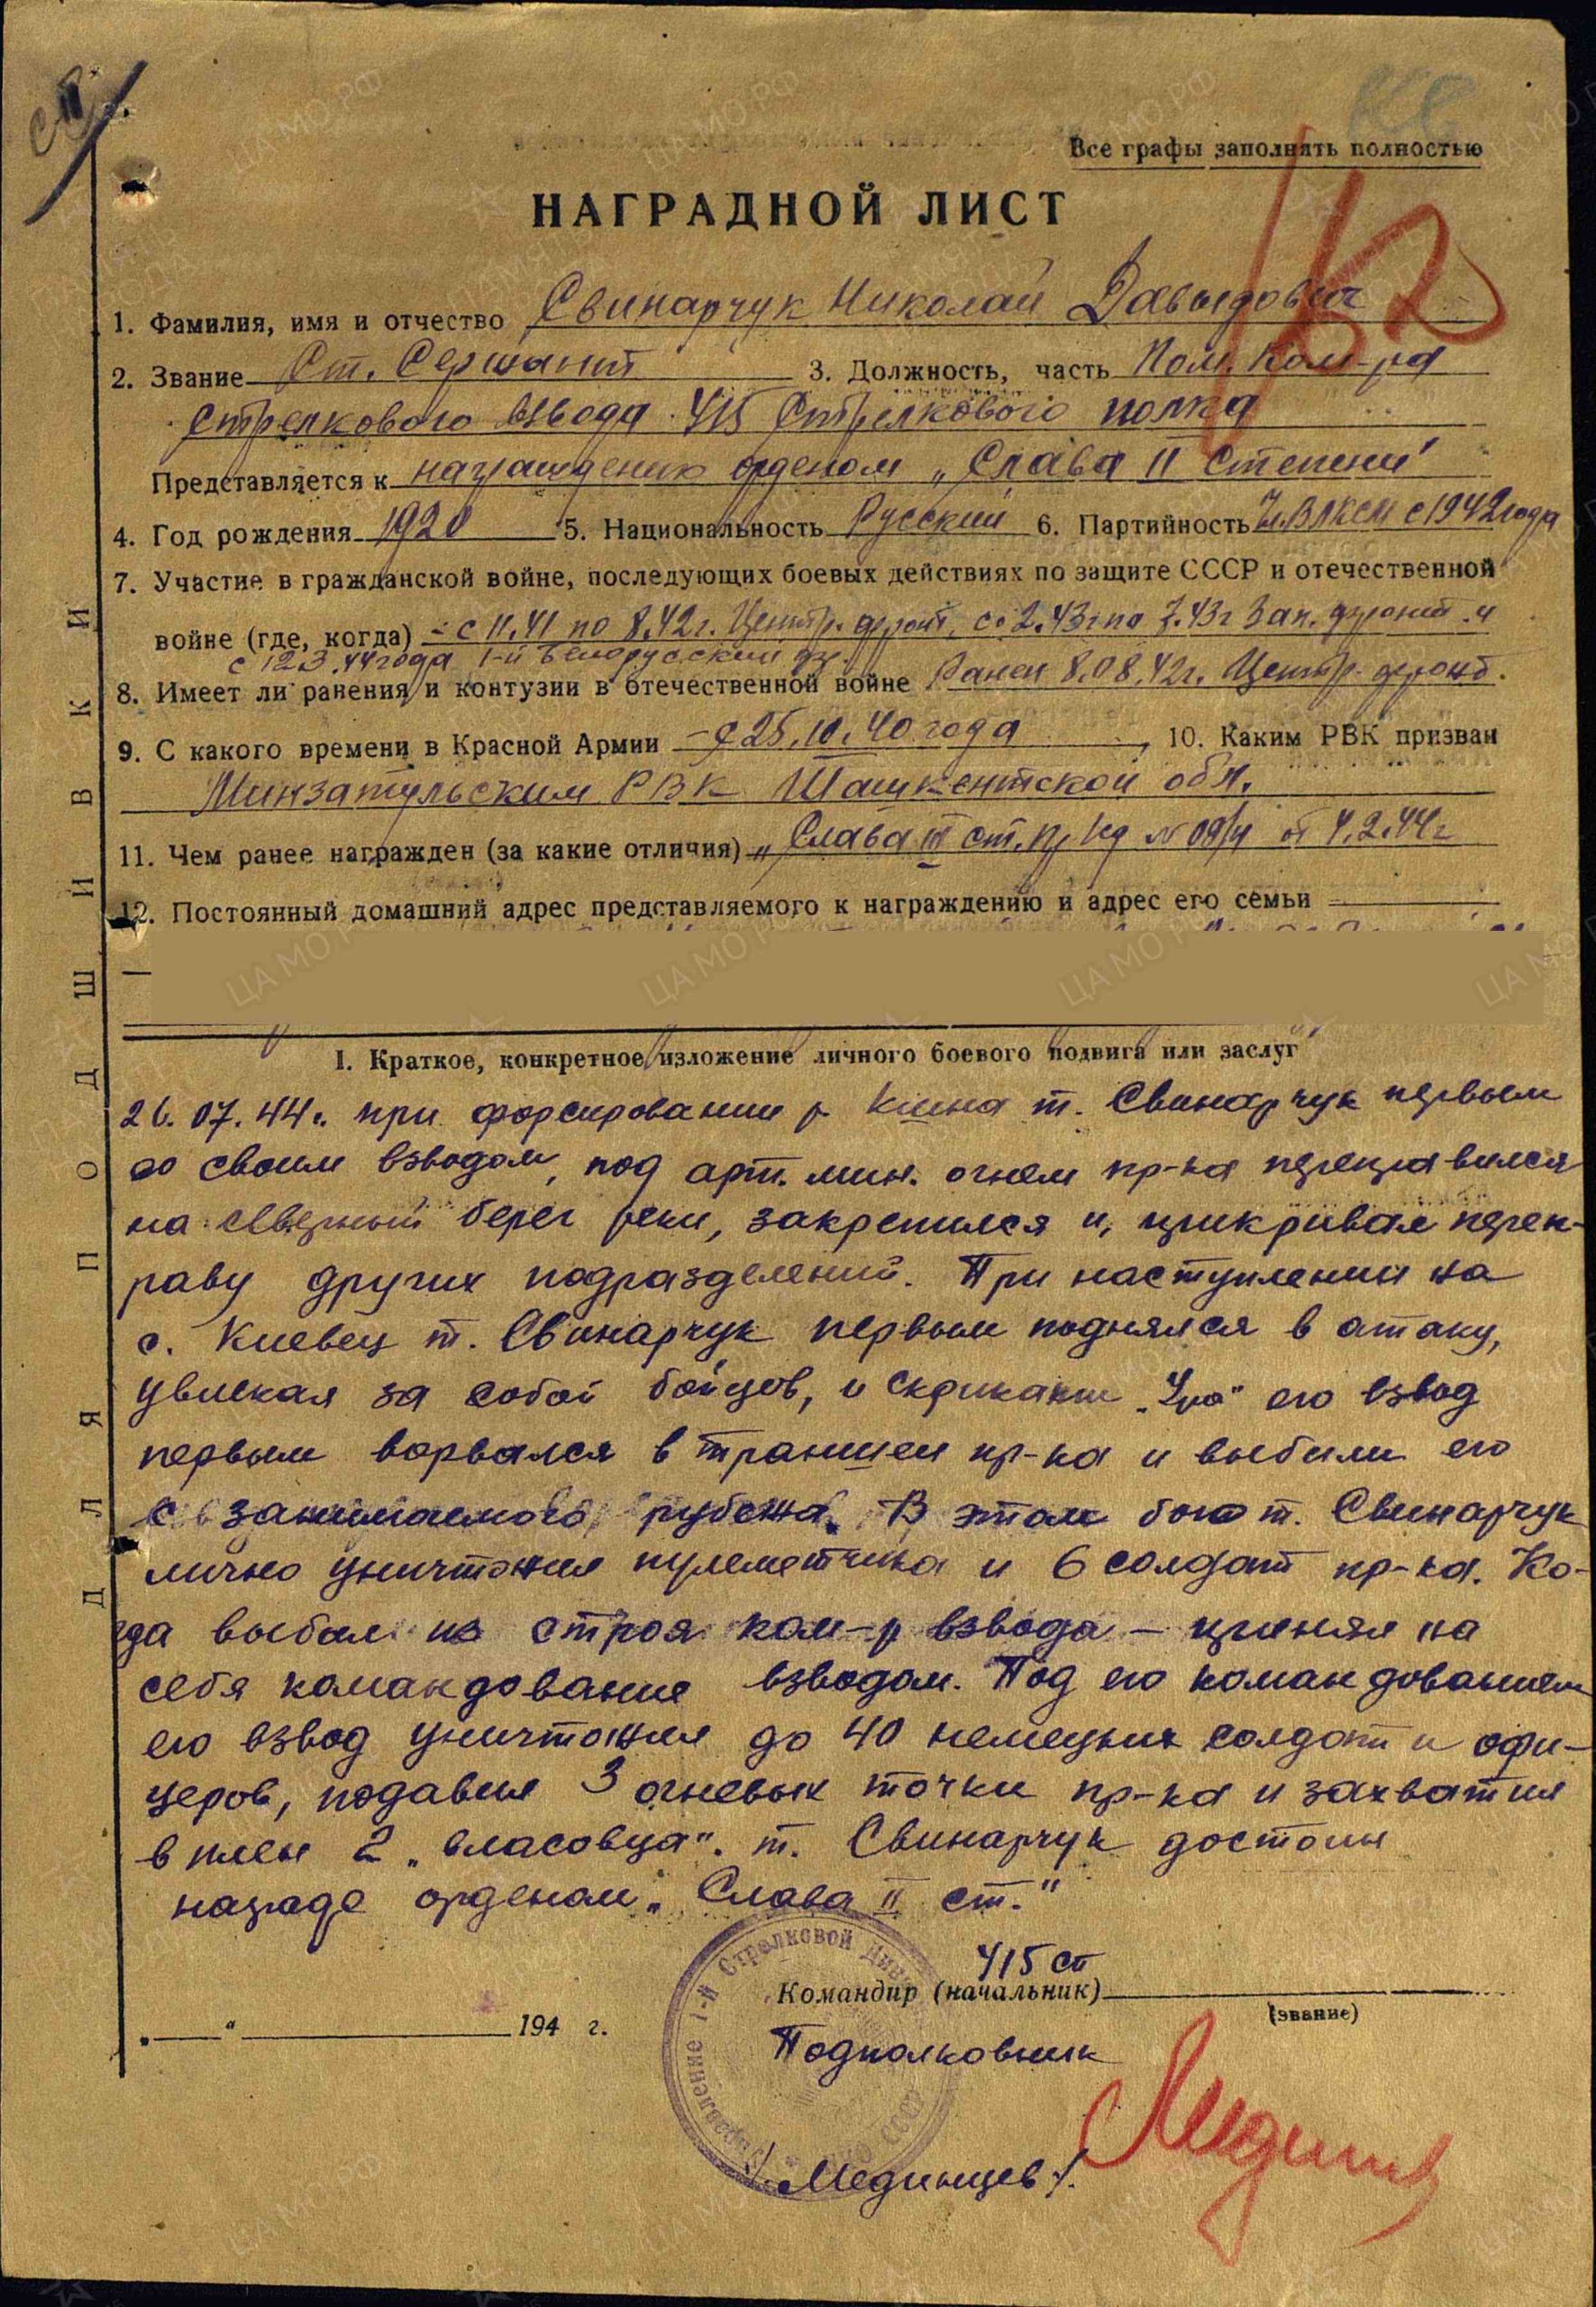 Все графы заполнять полностью
НАГРАДНОЙ ЛИСТ
1. Фамилия, имя и отчество Свинарчук Николай Давыдович
2. Звание Ст. Сержант 3. Должность, часть Пом. Ком-ра
стрелкового взвода 415 Стрелкового полка
Представляется к награждению орденом „Слава II степени"
4. Год рождения 1920 5. Национальность Русский 6. Партийность Чл. ВЛКСМ с 1942 года
7. Участие в гражданской войне, последующих боевых действиях по защите СССР и отечественной
войне (где, когда) - с 11.41 по 8.42г. Центр. фронт, с 2.43г по 7.43г Зап. фронт и
с 12.3.44 года 1-й Белорусский фр.
8. Имеет ли ранения и контузии в отечественной войне Ранен 8.08.42г. Центр. фронт.
9. С какого времени в Красной Армии - с 25.10.40 года, 10. Каким РВК призван
РВК Ташкентской обл.
11. Чем ранее награжден (за какие отличия) „Слава III ст. пр. № 09/н от 4.2.44г
12. Постоянный домашний адрес представляемого к награждению и адрес его семьи
1. Краткое, конкретное изложение личного боевого подвига или заслуг
26.07.44г. при форсировании р. т. Свинарчук первым
со своим взводом, под арт. мин. огнем пр-ка переправился
на северный берег реки, закрепился и, прикривал переп-
раву других подразделений. При наступлении на
с. Киевец т. Свинарчук первым поднялся в атаку,
увлекая за собой бойцов, и с криками „Ура" его взвод
первым ворвался в траншеи пр-ка и выбили его
с занимаемого рубежа. В этом бою т. Свинарчук
лично уничтожил пулеметчика и 6 солдат пр-ка. Ко-
гда выбыл из строя ком-р взвода — принял на
себя командование взводом. Под его командованием
его взвод уничтожил до 40 немецких солдат и офи-
церов, подавил 3 огневых точки пр-ка и захватил
в плен 2 „власовца". т. Свинарчук достоин
награде орденом „Слава II ст."
415 сп
Командир (начальник)
(звание)
„ " 194 г.
Подполковник
/Мединцев/.
Управление 1-й Стрелковой Див
СССР
ДЛЯ ПОДШИВКИ
ЦА МО РФ